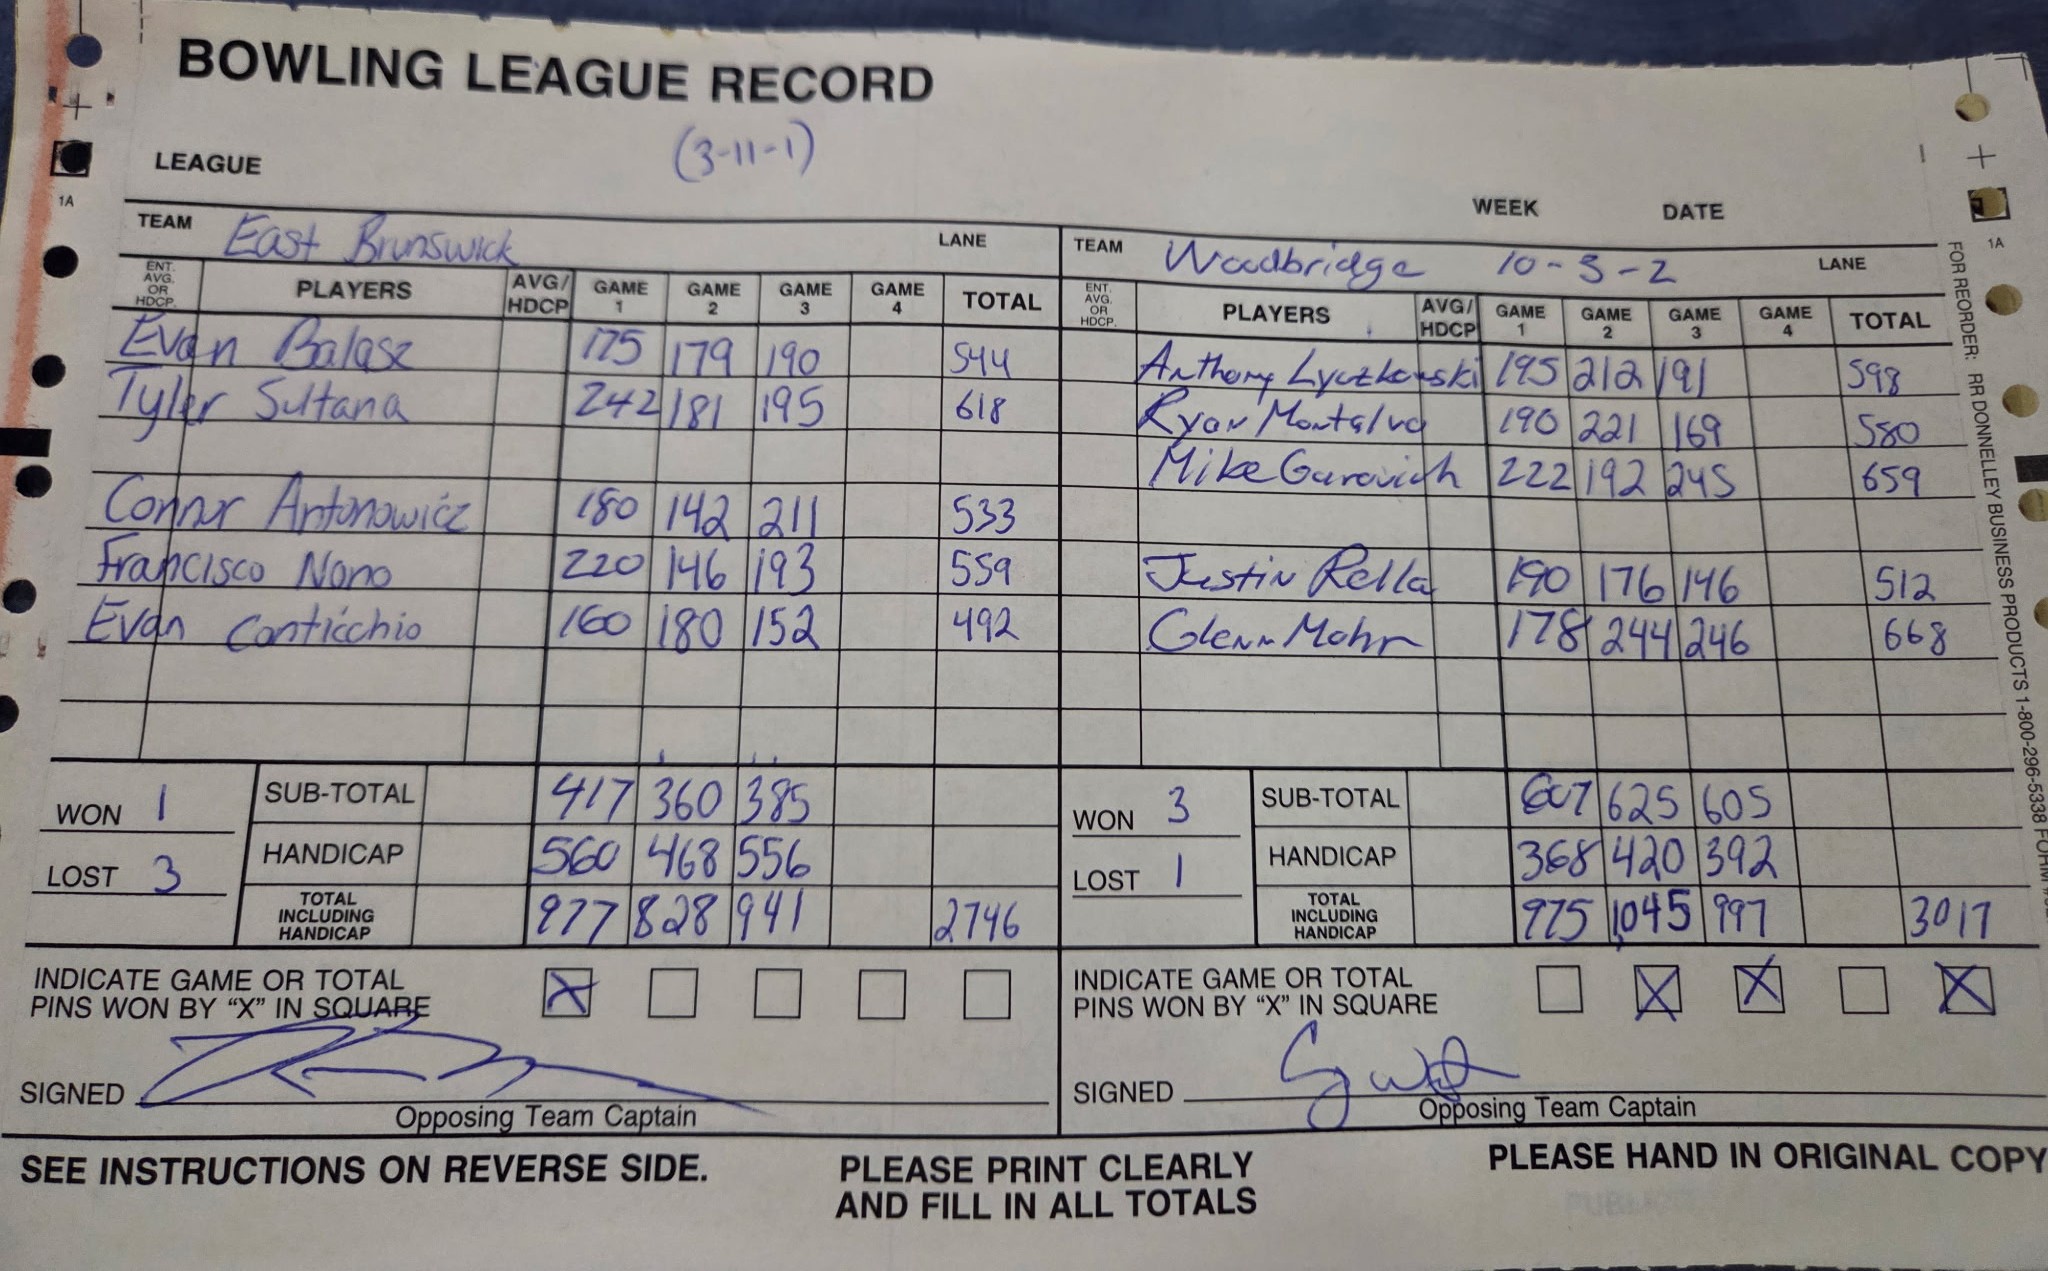 BOWLING LEAGUE RECORD
(3-11-1)
LEAGUE
WEEK DATE
1A
1A
TEAM East Brunswick LANE
ENT. AVG. OR HDCP. PLAYERS AVG/ HDCP GAME 1 GAME 2 GAME 3 GAME 4 TOTAL
Evan Balasz 175 179 190 544
Tyler Sultana 242 181 195 618
Connor Antonowicz 180 142 211 533
Francisco Nono 220 146 193 559
Evan Conticchio 160 180 152 492
WON 1
LOST 3
SUB-TOTAL 417 360 385
HANDICAP 560 468 556
TOTAL INCLUDING HANDICAP 977 828 941 2746
INDICATE GAME OR TOTAL
PINS WON BY "X" IN SQUARE X
SIGNED
Opposing Team Captain
TEAM Woodbridge 10-3-2 LANE
ENT. AVG. OR HDCP. PLAYERS AVG/ HDCP GAME 1 GAME 2 GAME 3 GAME 4 TOTAL
Anthony Lyczkowski 195 212 191 598
Ryan Montalvo 190 221 169 580
Mike Garovich 222 192 245 659
Justin Rella 190 176 146 512
Glenn Mohr 178 244 246 668
WON 3
LOST 1
SUB-TOTAL 607 625 605
HANDICAP 368 420 392
TOTAL INCLUDING HANDICAP 975 1,045 997 3017
INDICATE GAME OR TOTAL
PINS WON BY "X" IN SQUARE X X X
SIGNED
Opposing Team Captain
SEE INSTRUCTIONS ON REVERSE SIDE.
PLEASE PRINT CLEARLY
AND FILL IN ALL TOTALS
PLEASE HAND IN ORIGINAL COPY
FOR REORDER: RR DONNELLEY BUSINESS PRODUCTS 1-800-296-5338 FORM